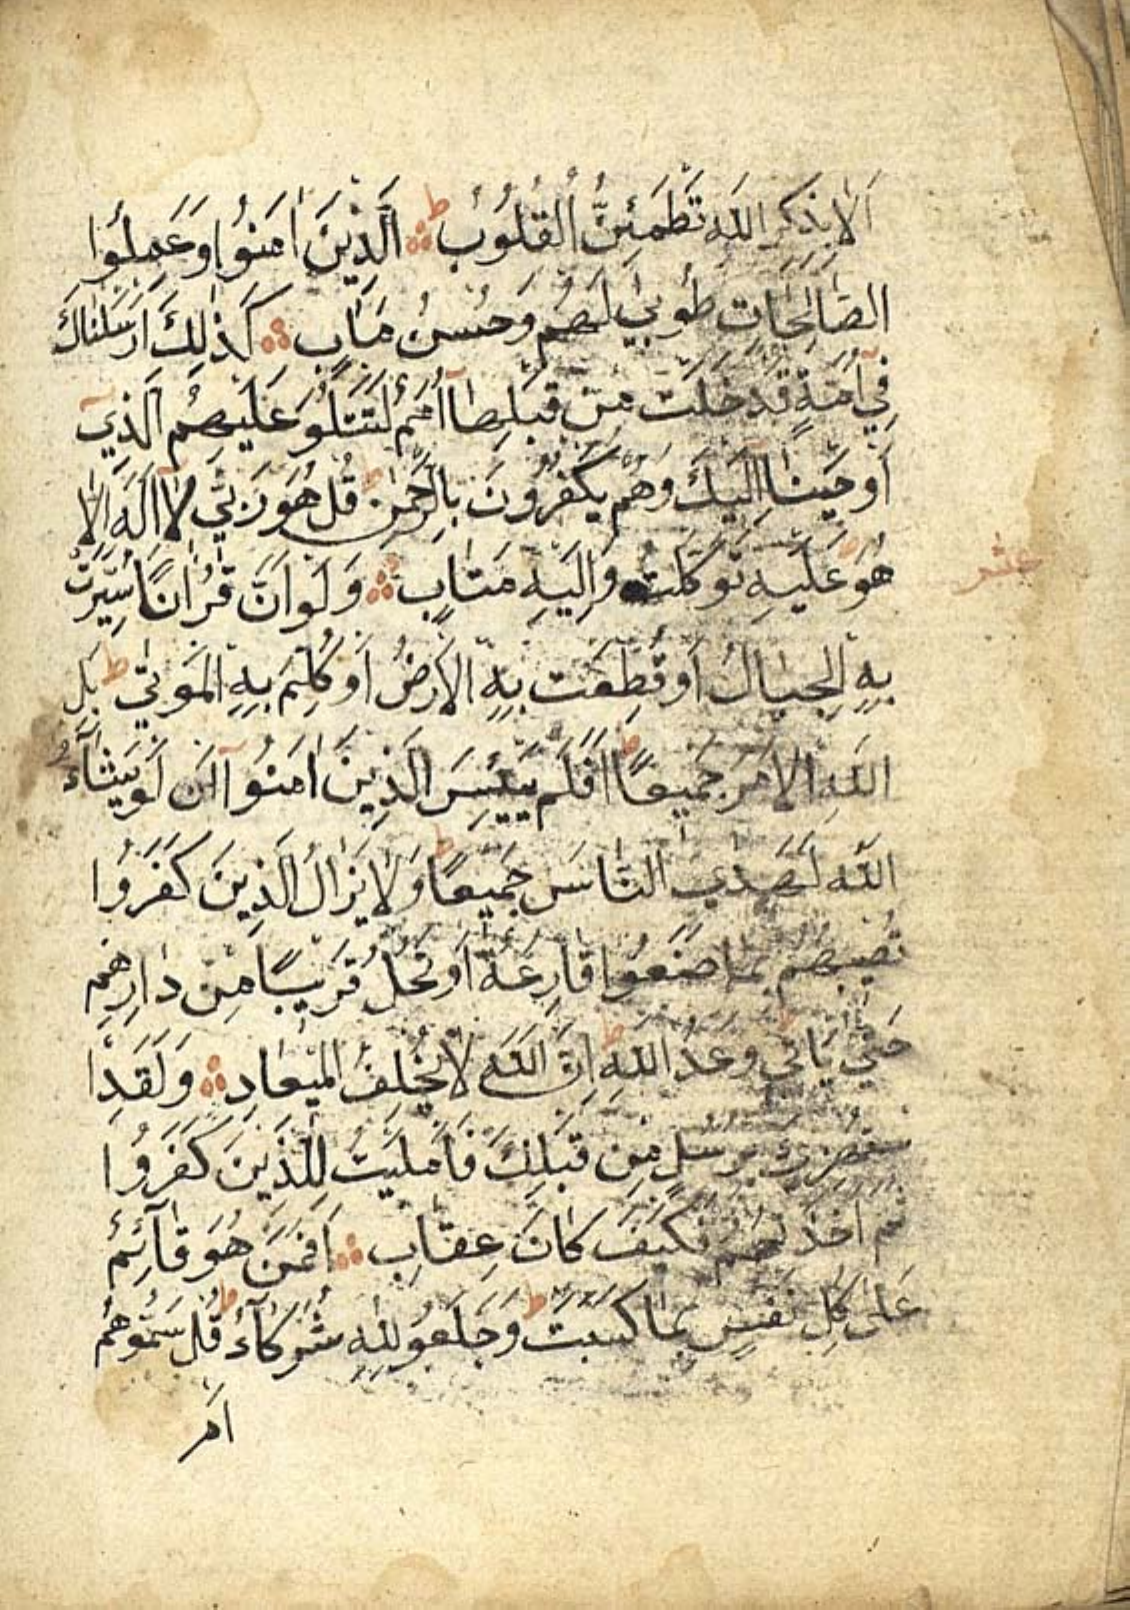 اَلَا بِذِكْرِ اللّٰهِ تَطْمَئِنُّ الْقُلُوبُ ط الَّذِينَ اٰمَنُوا وَعَمِلُوا
الصَّالِحَاتِ طُوبٰى لَهُمْ وَحُسْنُ مَاٰبٍ كَذٰلِكَ اَرْسَلْنَاكَ
فِٓي اُمَّةٍ قَدْ خَلَتْ مِنْ قَبْلِهَٓا اُمَمٌ لِتَتْلُوَ عَلَيْهِمُ الَّذِٓي
اَوْحَيْنَٓا اِلَيْكَ وَهُمْ يَكْفُرُونَ بِالرَّحْمٰنِ ط قُلْ هُوَ رَبِّي لَٓا اِلٰهَ اِلَّا
هُوَ ط عَلَيْهِ تَوَكَّلْتُ وَاِلَيْهِ مَتَابِ وَلَوْ اَنَّ قُرْاٰنًا سُيِّرَتْ
عشر
بِهِ الْجِبَالُ اَوْ قُطِّعَتْ بِهِ الْاَرْضُ اَوْ كُلِّمَ بِهِ الْمَوْتٰى ط بَلْ
لِلّٰهِ الْاَمْرُ جَمِيعًا ط اَفَلَمْ يَيْئَسِ الَّذِينَ اٰمَنُٓوا اَنْ لَوْ يَشَٓاءُ
اللّٰهُ لَهَدَى النَّاسَ جَمِيعًا ط وَلَا يَزَالُ الَّذِينَ كَفَرُوا
تُصِيبُهُمْ بِمَا صَنَعُوا قَارِعَةٌ اَوْ تَحُلُّ قَرِيبًا مِنْ دَارِهِمْ
حَتّٰى يَأْتِيَ وَعْدُ اللّٰهِ ط اِنَّ اللّٰهَ لَا يُخْلِفُ الْمِيعَادَ وَلَقَدِ ا
سْتُهْزِئَ بِرُسُلٍ مِنْ قَبْلِكَ فَاَمْلَيْتُ لِلَّذِينَ كَفَرُوا
ثُمَّ اَخَذْتُهُمْ فَكَيْفَ كَانَ عِقَابِ اَفَمَنْ هُوَ قَٓائِمٌ
عَلٰى كُلِّ نَفْسٍ بِمَا كَسَبَتْ ط وَجَعَلُوا لِلّٰهِ شُرَكَٓاءَ ط قُلْ سَمُّوهُمْ
اَمْ